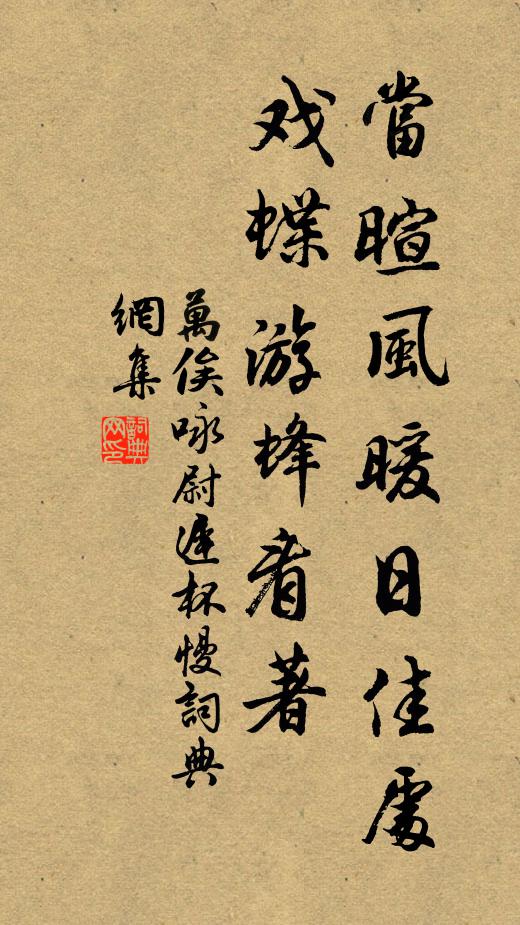 當暄風暖日佳處
戏蝶游蜂看著
萬俟咏尉遲杯慢詞典
網集
詞典
网印